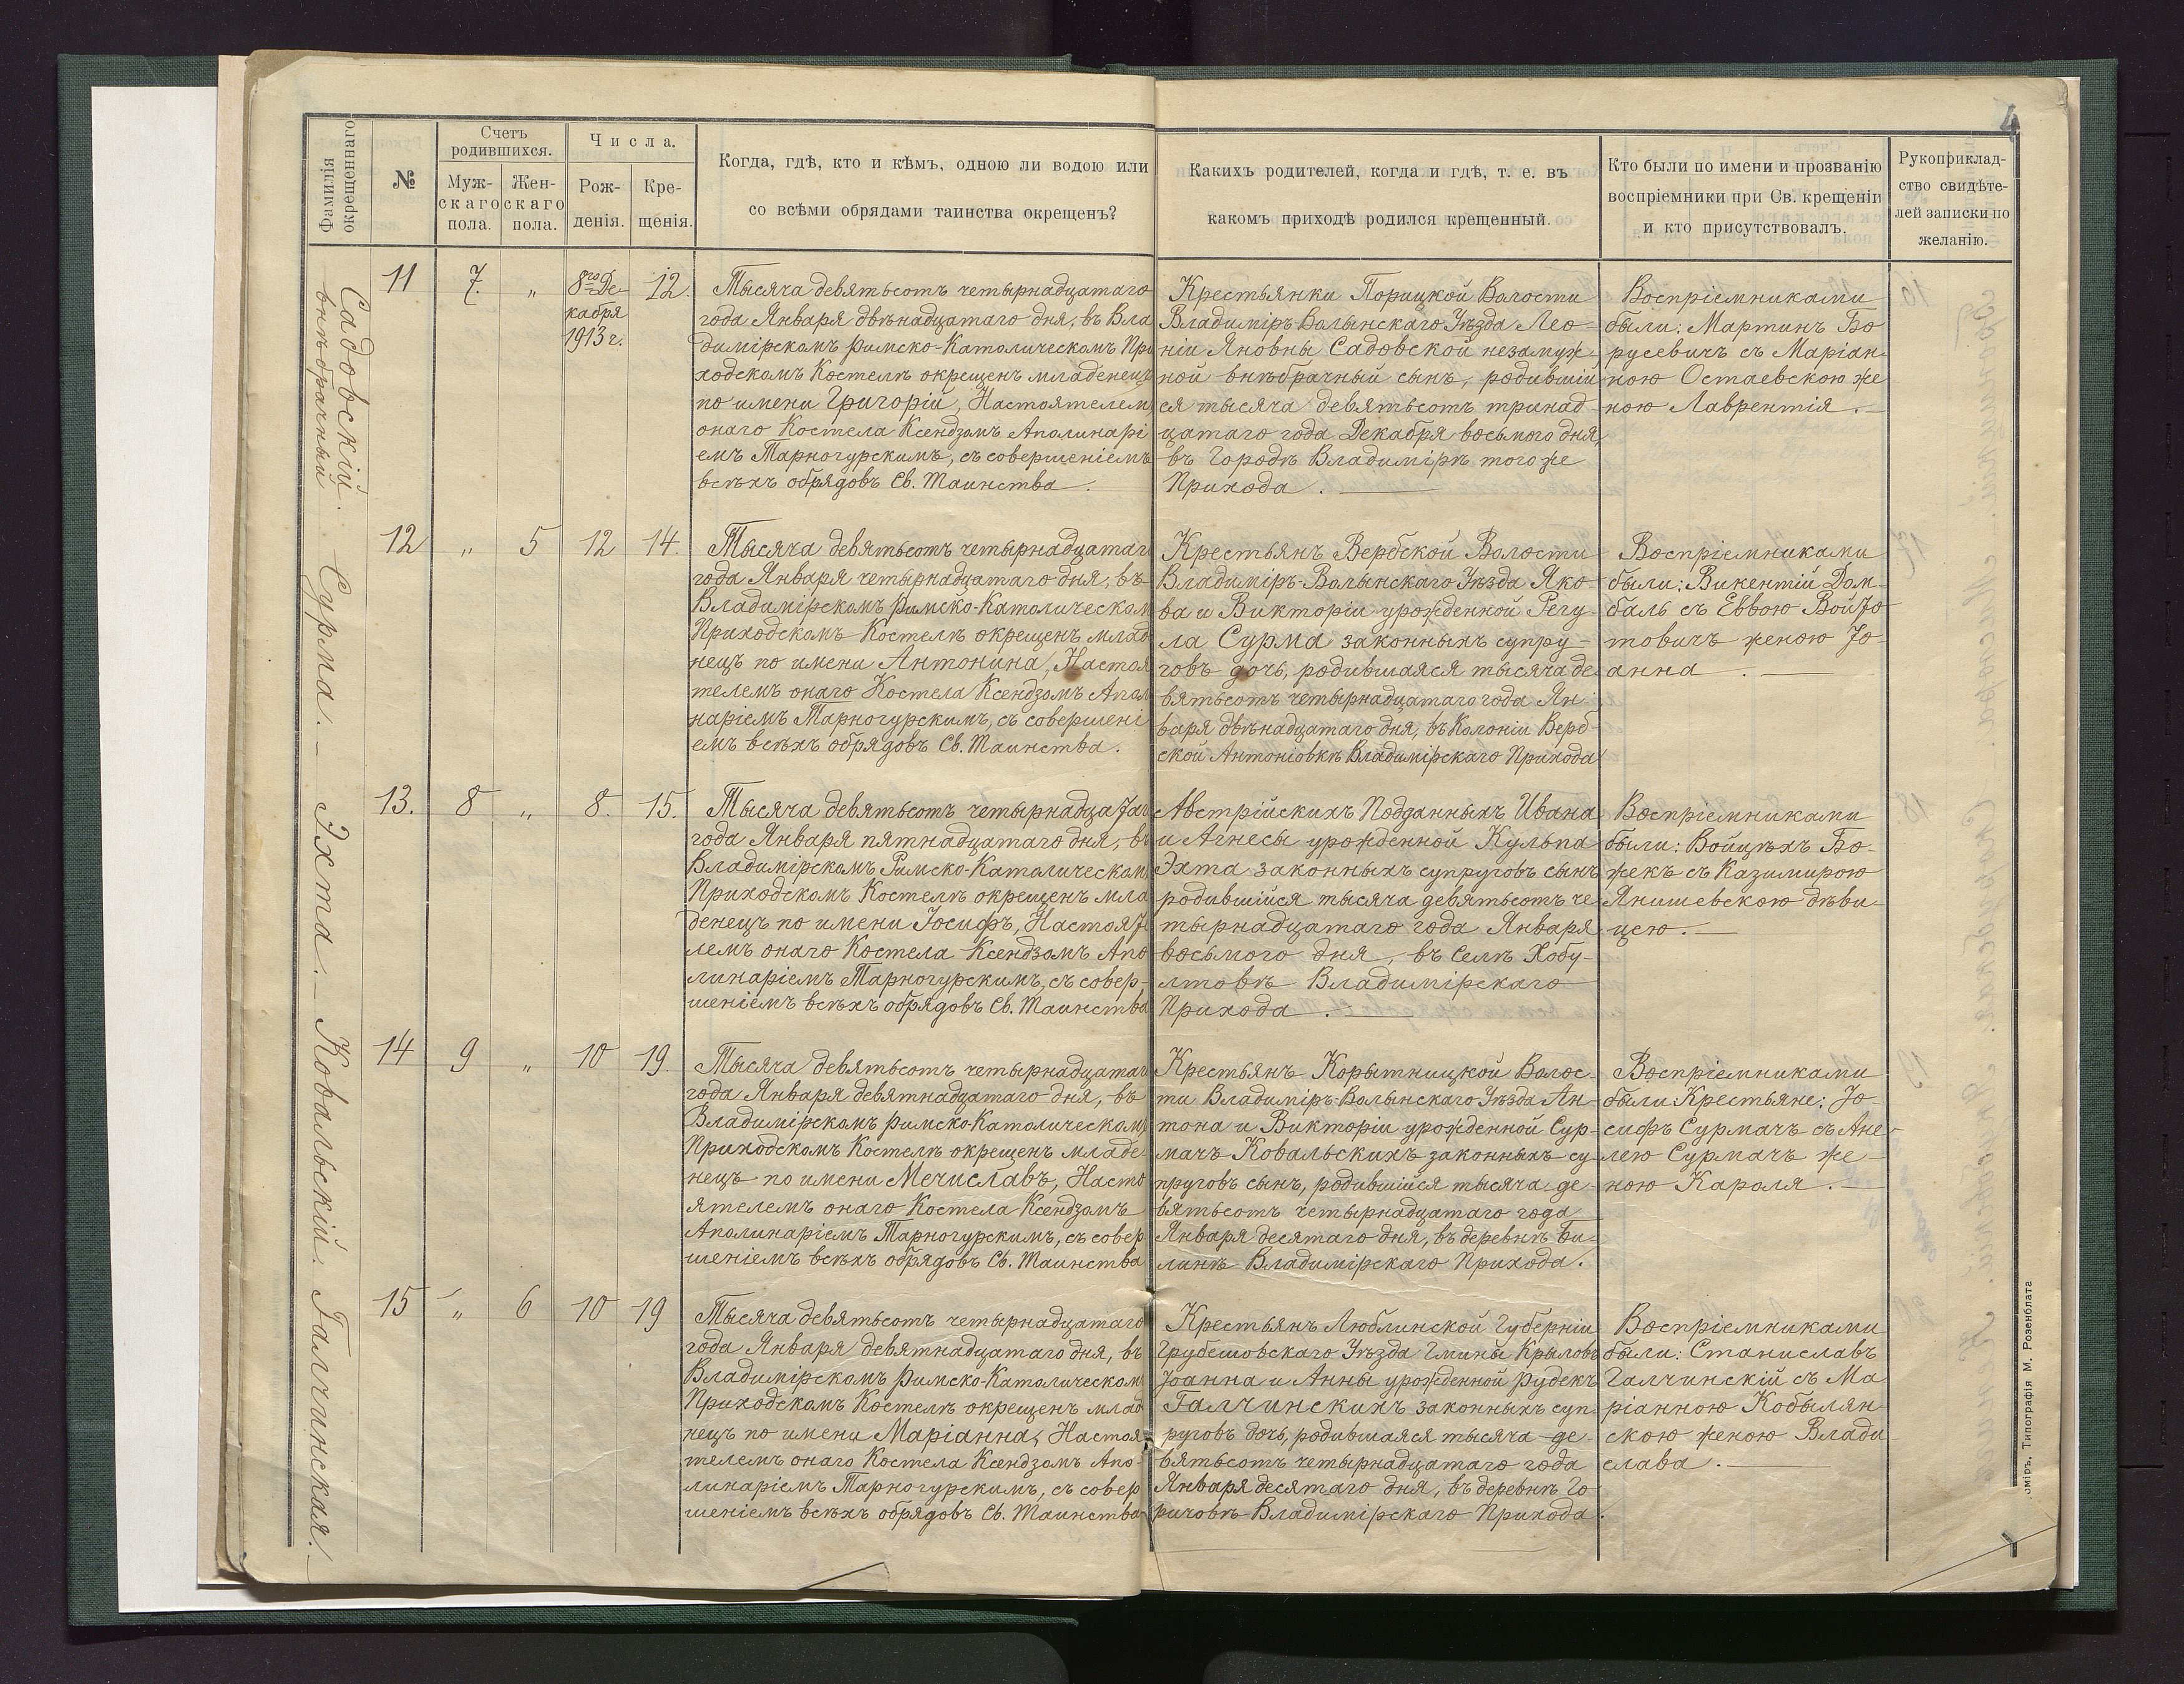 4
Фамилія окрещеннаго
№
Счетъ родившихся.
Муж-
скаго
пола.
Жен-
скаго
пола.
Числа.
Рож-
денія.
Кре-
щенія.
Когда, гдѣ, кто и кѣмъ, одною ли водою или
со всѣми обрядами таинства окрещенъ?
Какихъ родителей, когда и гдѣ, т. е. въ
какомъ приходѣ родился крещенный.
Кто были по имени и прозванію
воспріемники при Св. крещеніи
и кто присутствовалъ.
Рукоприклад-
ство свидѣте-
лей записки по
желанію.
Садовскій.
внѣбрачный
11
7.
„
8го Де-
кабря
1913 г.
12.
Тысяча девятьсотъ четырнадцатаго
года Января двѣнадцатаго дня, въ Вла
димірскомъ Римско-Католическомъ При
ходскомъ Костелѣ окрещенъ младенецъ
по имени Григорій, Настоятелем
онаго Костела Ксендзомъ Аполинарі
емъ Тарногурскимъ, съ совершеніемъ
всѣхъ обрядовъ Св. Таинства.
Крестьянки Порицкой Волости
Владиміръ-Волынскаго Уѣзда Лео-
ніи Яновны Садовской незамуж-
ной внѣбрачный сынъ, родившій
ся тысяча девятьсотъ тринад-
цатаго года Декабря восьмого дня
въ Городѣ Владимірѣ того же
Прихода.
Воспріемниками
были: Мартинъ Бо
русевичъ съ Маріан
ною Остаевскою же
ною Лаврентія.
Сурма.
12
„
5
12
14.
Тысяча девятьсотъ четырнадцатаг
года Января четырнадцатаго дня, въ
Владимірскомъ Римско-Католическом
Приходскомъ Костелѣ окрещенъ млад
нецъ по имени Антонина, Настоя
телемъ онаго Костела Ксендзомъ Апол
наріемъ Тарногурскимъ, съ совершені
емъ всѣхъ обрядовъ Св. Таинства.
Крестьянъ Вербской Волости
Владиміръ-Волынскаго Уѣзда Яко-
ва и Викторіи урожденной Регу-
ла Сурма законныхъ супру-
говъ дочь, родившаяся тысяча де-
вятьсотъ четырнадцатаго года Ян-
варя двѣнадцатаго дня, въ Колоніи Верб-
ской Антоніовкѣ Владимірскаго Прихода
Воспріемниками
были: Викентій Дом-
баль съ Еввою Войто
товичъ женою Іо-
анна.
Эхта.
13.
8
„
8.
15.
Тысяча девятьсотъ четырнадцатаг
года Января пятнадцатаго дня, въ
Владимірскомъ Римско-Католическом
Приходскомъ Костелѣ окрещенъ мла
денецъ по имени Іосифъ, Настояте
лемъ онаго Костела Ксендзомъ Апо
линаріемъ Тарногурскимъ, съ совер-
шеніемъ всѣхъ обрядовъ Св. Таинства
Австрійскихъ Подданныхъ Ивана
и Агнесы урожденной Кульпа
Эхта законныхъ супруговъ сынъ
родившійся тысяча девятьсотъ че-
тырнадцатаго года Января
восьмого дня, въ Селѣ Хобу-
лтовѣ Владимірскаго
Прихода.
Воспріемниками
были: Войцѣхъ Бо-
жекъ съ Казимирою
Янишевскою дѣви-
цею.
Ковальскій.
14
9
„
10
19.
Тысяча девятьсотъ четырнадцатаг
года Января девятнадцатаго дня, въ
Владимірскомъ Римско-Католическом
Приходскомъ Костелѣ окрещенъ младе-
нецъ по имени Мечиславъ, Насто
ятелемъ онаго Костела Ксендзомъ
Аполинаріемъ Тарногурскимъ, съ совер
шеніемъ всѣхъ обрядовъ Св. Таинства
Крестьянъ Корытницкой Волос-
ти Владиміръ-Волынскаго Уѣзда Ан-
тона и Викторіи урожденной Сур-
мачъ Ковальскихъ законныхъ су-
пруговъ сынъ, родившійся тысяча де-
вятьсотъ четырнадцатаго года
Января десятаго дня, въ деревнѣ Би-
линѣ Владимірскаго Прихода.
Воспріемниками
были Крестьяне: Іо
сифъ Сурмачъ съ Ане-
лею Сурмачъ же-
ною Кароля.
Галчинская.
15
„
6
10
19
Тысяча девятьсотъ четырнадцатаго
года Января девятнадцатаго дня, въ
Владимірскомъ Римско-Католическом
Приходскомъ Костелѣ окрещенъ млад
нецъ по имени Маріанна, Настоя
телемъ онаго Костела Ксендзомъ Апо-
линаріемъ Тарногурскимъ, съ совер
шеніемъ всѣхъ обрядовъ Св. Таинства
Крестьянъ Люблинской Губерніи
Грубешовскаго Уѣзда Гмины Крыловъ
Іоанна и Анны урожденной Рудекъ
Галчинскихъ законныхъ суп-
руговъ дочь, родившаяся тысяча де-
вятьсотъ четырнадцатаго года
Января десятаго дня, въ деревнѣ Го
ричовѣ Владимірскаго Прихода.
Воспріемниками
были: Станиславъ
Галчинскій съ Ма
ріанною Кобылян
скою женою Влади
слава.
міръ, Типографія М. Розенблата